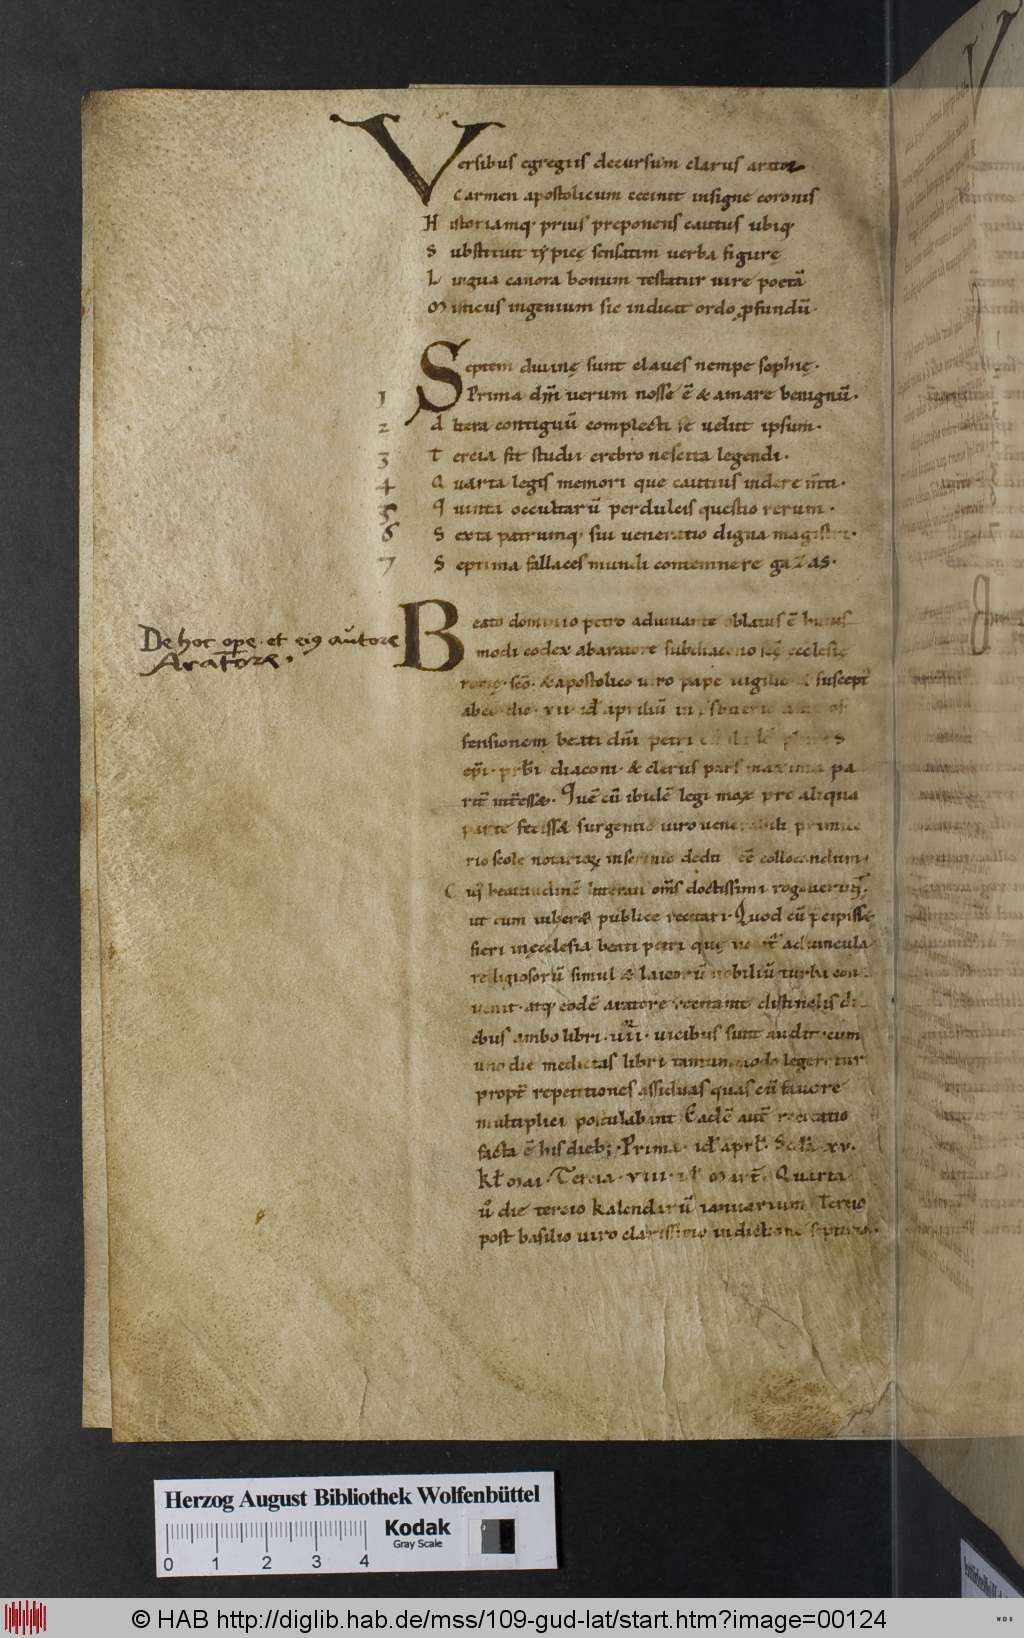 Versibus egregiis decursum clarus arator
Carmen apostolicum cecinit insigne coronis
Historiamq; prius preponens cautus ubiq;
Substituit tẏpicę sensatim uerba figure
Lingua canora bonum testatur uire poetā
Misticus ingenium sic indicat ordo ꝓfundū·
Septem diuinę sunt claues nempe sophię·
1 Prima dm̄ uerum nosse ē & amare benignū·
2 Altera contiguū complecti se uelut ipsum·
3 Tercia sit studii crebro nescita legendi·
4 Quarta legis memori que cautius indere m̄ti·
5 Quinta occultarū perdulcis questio rerum·
6 Sexta patrumq; siu ueneratio digna magistri·
7 Septima fallaces mundi contemnere gazas·
De hoc ope· et eiꝰ autore
Aratore·
Beato domino petro adiuuante oblatus ē huius
modi codex abaratore subdiacono scę ecclesię
rome· scō· & apostolico uiro pape uigilio & suscept᷒
abeo die· xii· id᷒ apriliū in
fensionem beati dm̄ petri
ep̄i· prb̄i diaconi· & clerus pars maxima pa
rit᷒ int᷒ess&· Quē cū ibidē legi mox pro aliqua
parte feciss& surgentio uiro uenerabili primice
rio scole notarioꝝ inscrinio dedit collocandum·
Cuiꝰ beatitudinē litterati om̄s doctissimi rogauerunt
ut eum iuber& publice recitari· Quod cū p̄cepiss&
fieri inęcclesia beati petri quę uocat᷒ aduincula
religiosorū simul & laicorū nobiliū turba con
uenit· atq; eodē aratore recitante distinctis di
ebus ambo libri· uicibus sunt auditi· cum
uno die medietas libri tantummodo legeretur
propt᷒ repetitiones assiduas quas cū fauore
multiplici postulabant Eadē aut᷒ recitatio
facta ē his dieb;· Prima· id᷒ apr̄l· Scd̄a xv·
kl᷒ mai· Tercia· viii· id᷒ Mart᷒· Quarta
u̇ die tercio kalendarū ianuarium Tercio
post basilio uiro clarissimo indictione septima·
Herzog August Bibliothek Wolfenbüttel
Kodak
Gray Scale
0 1 2 3 4
© HAB http://diglib.hab.de/mss/109-gud-lat/start.htm?image=00124